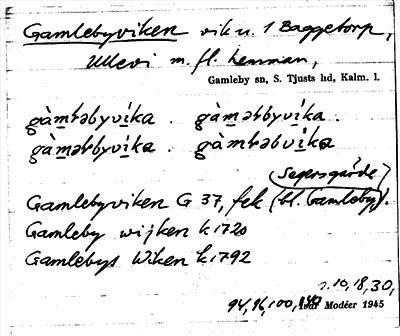 Gamlebyviken vik u. 1 Baggetorp,
Ullevi m. fl. hemman,
Gamleby sn, S. Tjusts hd, Kalm. l.
gàmləbyvíka . gàmərbyvíka .
gàmərbyvíka . gàmləbvíka
(Segersgärde)
Gamlebyviken G 37, fek (bl. Gamleby).
Gamleby wijken k 1720
Gamlebys Wiken k 1792
10, 18, 30,
94, 96, 100, 140
Ivar Modéer 1945